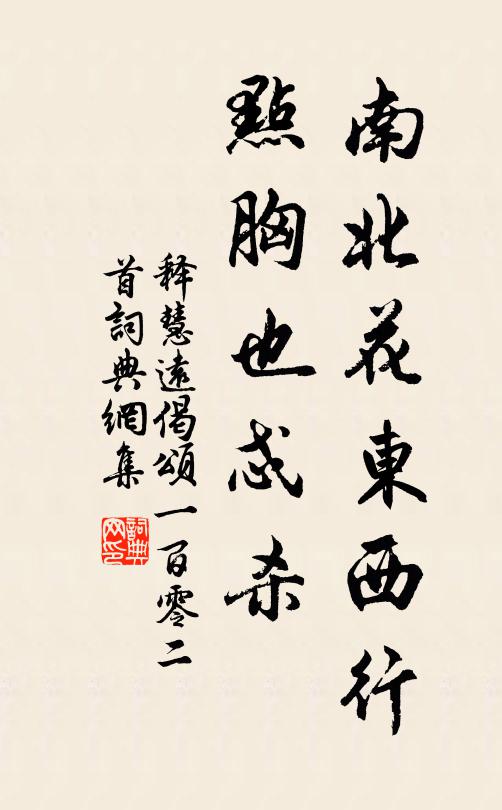 南北花東西行
點胸也忒杀
释慧遠偈頌一百零二
首詞典網集
詞典网印